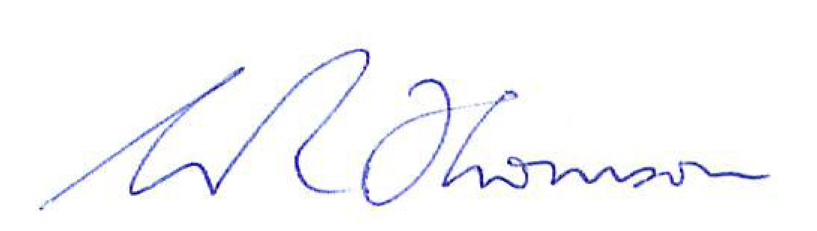 WR Thomson